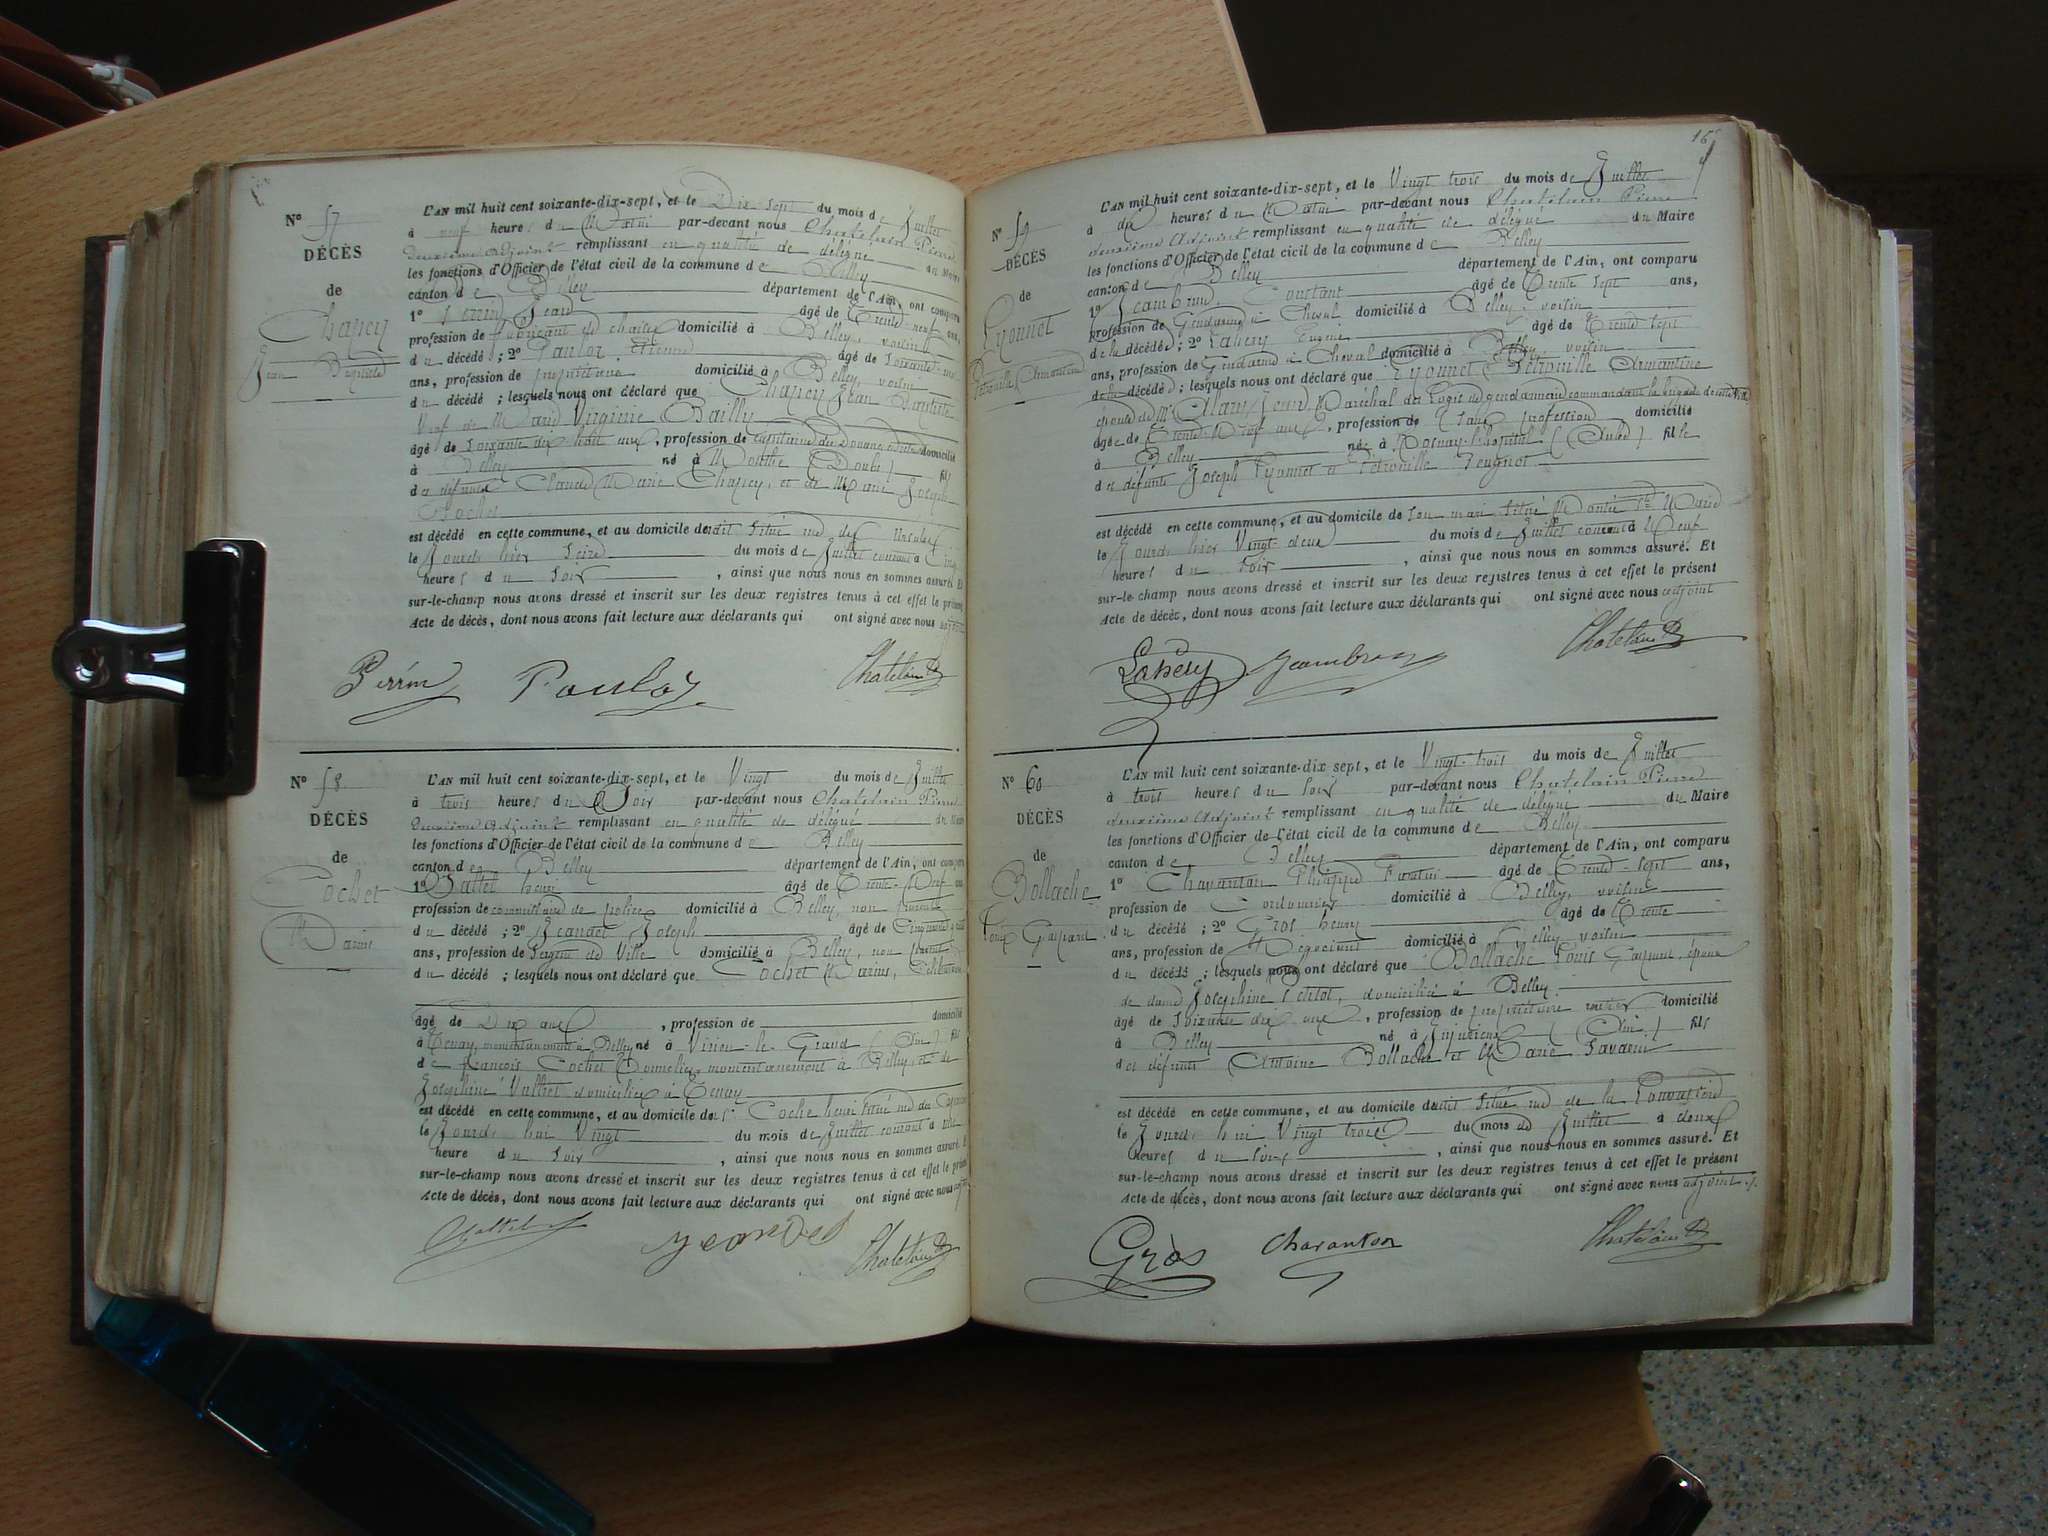 Nº 57
DÉCÈS
de
Chapey
Jean Baptiste
L'AN mil huit cent soixante-dix-sept, et le Dix-sept du mois de Juillet
à neuf heures du Matin par-devant nous Chatelain Pierre
deuxième adjoint remplissant en qualité de délégué du Maire
les fonctions d'Officier de l'état civil de la commune de Belley
canton de Belley département de l'Ain, ont comparu
1º Perrin Jean âgé de Trente neuf ans,
profession de fabricant de chaises domicilié à Belley, voisin
du décédé ; 2º Etienne âgé de soixante
ans, profession de propriétaire domicilié à Belley, voisin
du décédé ; lesquels nous ont déclaré que Chapey Jean Baptiste
Veuf de Marie Virginie Bailly
âgé de soixante dix huit ans, profession de capitaine des Douanes domicilié
à Belley né à Mouthe (Doubs) fils
des défunts Claude Marie Chapey, et de Marie Joseph
est décédé en cette commune, et au domicile dudit situé rue des Ursules
le Jourd'hier seize du mois de Juillet courant à Cinq
heures du soir, ainsi que nous nous en sommes assuré. Et
sur-le-champ nous avons dressé et inscrit sur les deux registres tenus à cet effet le présent
Acte de décès, dont nous avons fait lecture aux déclarants qui ont signé avec nous adjoint
Perrin Chatelain
Nº 58
DÉCÈS
de
Cochet
Marius
L'AN mil huit cent soixante-dix-sept, et le Vingt du mois de Juillet
à trois heures du Soir par-devant nous Chatelain Pierre
deuxième adjoint remplissant en qualité de délégué du Maire
les fonctions d'Officier de l'état civil de la commune de Belley
canton de Belley département de l'Ain, ont comparu
1º henri âgé de Trente-Neuf ans
profession de commissaire de police domicilié à Belley, non parent
du décédé ; 2º Jeandet Joseph âgé de Cinquante
ans, profession de sergent de Ville domicilié à Belley, non parent
du décédé ; lesquels nous ont déclaré que Cochet Marius, Célibataire
âgé de Dix ans, profession de domicilié
à Tenay, momentanement à Belley né à Virieu-le-Grand (Ain) fils
de françois Cochet Tonnelier momentanement à Belley, et de
Josephine Vuillet domiciliée à Tenay
est décédé en cette commune, et au domicile du Sr Coche henri situé rue des
le Jourd'hui Vingt du mois de Juillet courant à une
heure du soir, ainsi que nous nous en sommes assuré. Et
sur-le-champ nous avons dressé et inscrit sur les deux registres tenus à cet effet le présent
Acte de décès, dont nous avons fait lecture aux déclarants qui ont signé avec nous adjoint
Jeandet Chatelain
16
Nº 59
DÉCÈS
de
Lyonnet
Pétronille Armantine
L'AN mil huit cent soixante-dix-sept, et le Vingt trois du mois de Juillet
à dix heures du Matin par-devant nous Chatelain Pierre
deuxième adjoint remplissant en qualité de délégué du Maire
les fonctions d'Officier de l'état civil de la commune de Belley
canton de Belley département de l'Ain, ont comparu
1º Jeambrun Constant âgé de Trente sept ans,
profession de Gendarme à Cheval domicilié à Belley, voisin
de la décédée ; 2º Lahery Eugène âgé de Trente sept
ans, profession de Gendarme à Cheval domicilié à Belley, voisin
de la décédée ; lesquels nous ont déclaré que Lyonnet Pétronille Armantine
épouse de Mr Jean, Maréchal des Logis de gendarmerie commandant la brigade de cette Ville
âgée de Trente-Neuf ans, profession de sans profession domicilié
à Belley née à Rosnay-l'hopital (Aube) fille
des défunts Joseph Lyonnet et Pétronille Jeugnot
est décédé en cette commune, et au domicile de son mari situé Montée Ste Marie
le Jourd'hier Vingt-deux du mois de Juillet courant à Neuf
heures du soir, ainsi que nous nous en sommes assuré. Et
sur-le-champ nous avons dressé et inscrit sur les deux registres tenus à cet effet le présent
Acte de décès, dont nous avons fait lecture aux déclarants qui ont signé avec nous adjoint
Lahery Jeambrun Chatelain
Nº 60
DÉCÈS
de
Bollache
Louis Gaspard
L'AN mil huit cent soixante-dix-sept, et le Vingt-trois du mois de Juillet
à trois heures du soir par-devant nous Chatelain Pierre
deuxième adjoint remplissant en qualité de délégué du Maire
les fonctions d'Officier de l'état civil de la commune de Belley
canton de Belley département de l'Ain, ont comparu
1º Charanton Philippe âgé de Trente-sept ans,
profession de Cordonnier domicilié à Belley, voisin
du décédé ; 2º Gros henry âgé de Trente
ans, profession de Négociant domicilié à Belley voisin
du décédé ; lesquels nous ont déclaré que Bollache Louis Gaspard, époux
de dame Josephine Petitot, domiciliée à Belley
âgé de soixante dix ans, profession de propriétaire rentier domicilié
à Belley né à Injurieux (Ain) fils
des défunts Antoine Bollache et Marie Savarin
est décédé en cette commune, et au domicile dudit situé rue de la
le Jourd'hui Vingt trois du mois de Juillet à deux
heures du soir, ainsi que nous nous en sommes assuré. Et
sur-le-champ nous avons dressé et inscrit sur les deux registres tenus à cet effet le présent
Acte de décès, dont nous avons fait lecture aux déclarants qui ont signé avec nous adjoint
Gros Charanton Chatelain